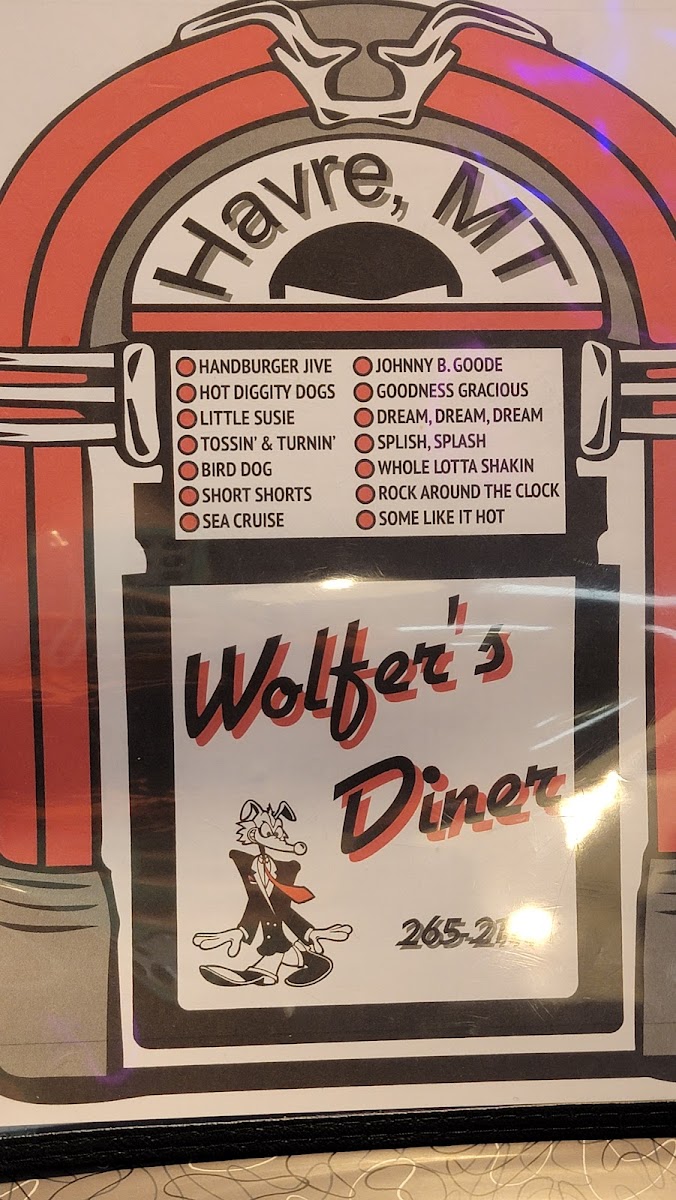 Havre, MT
HANDBURGER JIVE
HOT DIGGITY DOGS
LITTLE SUSIE
TOSSIN' & TURNIN'
BIRD DOG
SHORT SHORTS
SEA CRUISE
JOHNNY B. GOODE
GOODNESS GRACIOUS
DREAM, DREAM, DREAM
SPLISH, SPLASH
WHOLE LOTTA SHAKIN
ROCK AROUND THE CLOCK
SOME LIKE IT HOT
Wolfer's
Diner